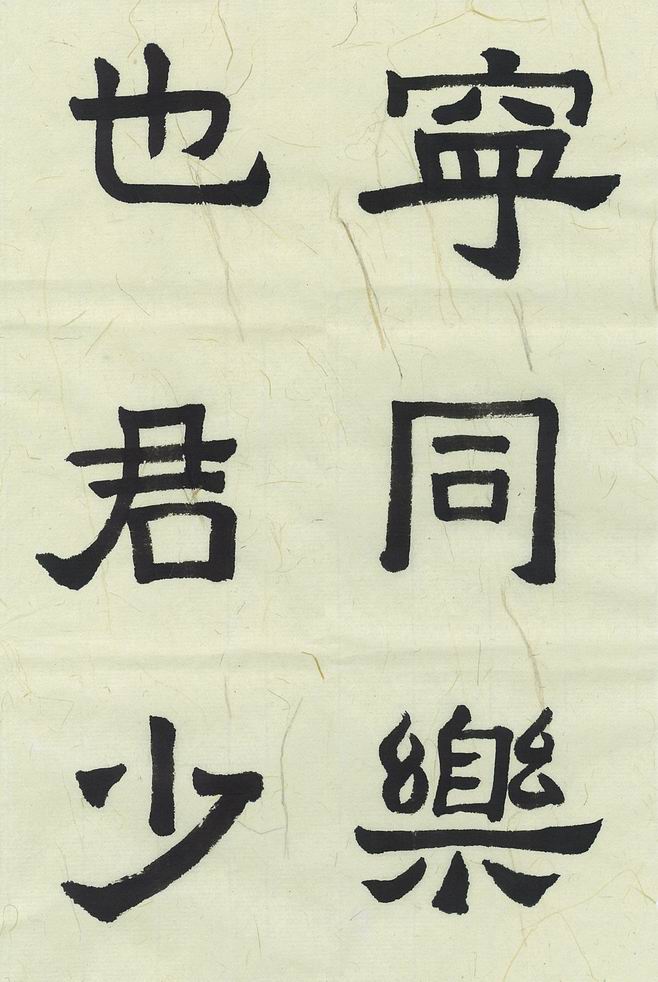 寧同樂
也君少